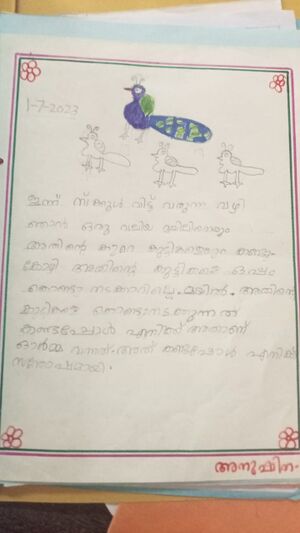 1-7-2023
ഇന്ന് സ്ക്കൂൾ വിട്ട് വരുന്ന വഴി
ഞാൻ ഒരു വലിയ മയിലിനെയും
അതിന്റെ കുറെ കുട്ടികളെയും കണ്ടു.
കോഴി അതിന്റെ കുട്ടികളെ ഒപ്പം
കൊണ്ടു നടക്കാറില്ലെ. മയിൽ. അതിന്റെ
കുട്ടികളെ കൊണ്ടുനടക്കുന്നത്
കണ്ടപ്പോൾ എനിക്ക് അതാണ്
ഓർമ്മ വന്നത്. അത് കണ്ടപ്പോൾ എനിക്ക്
സന്തോഷമായി.
അനുഷിന.